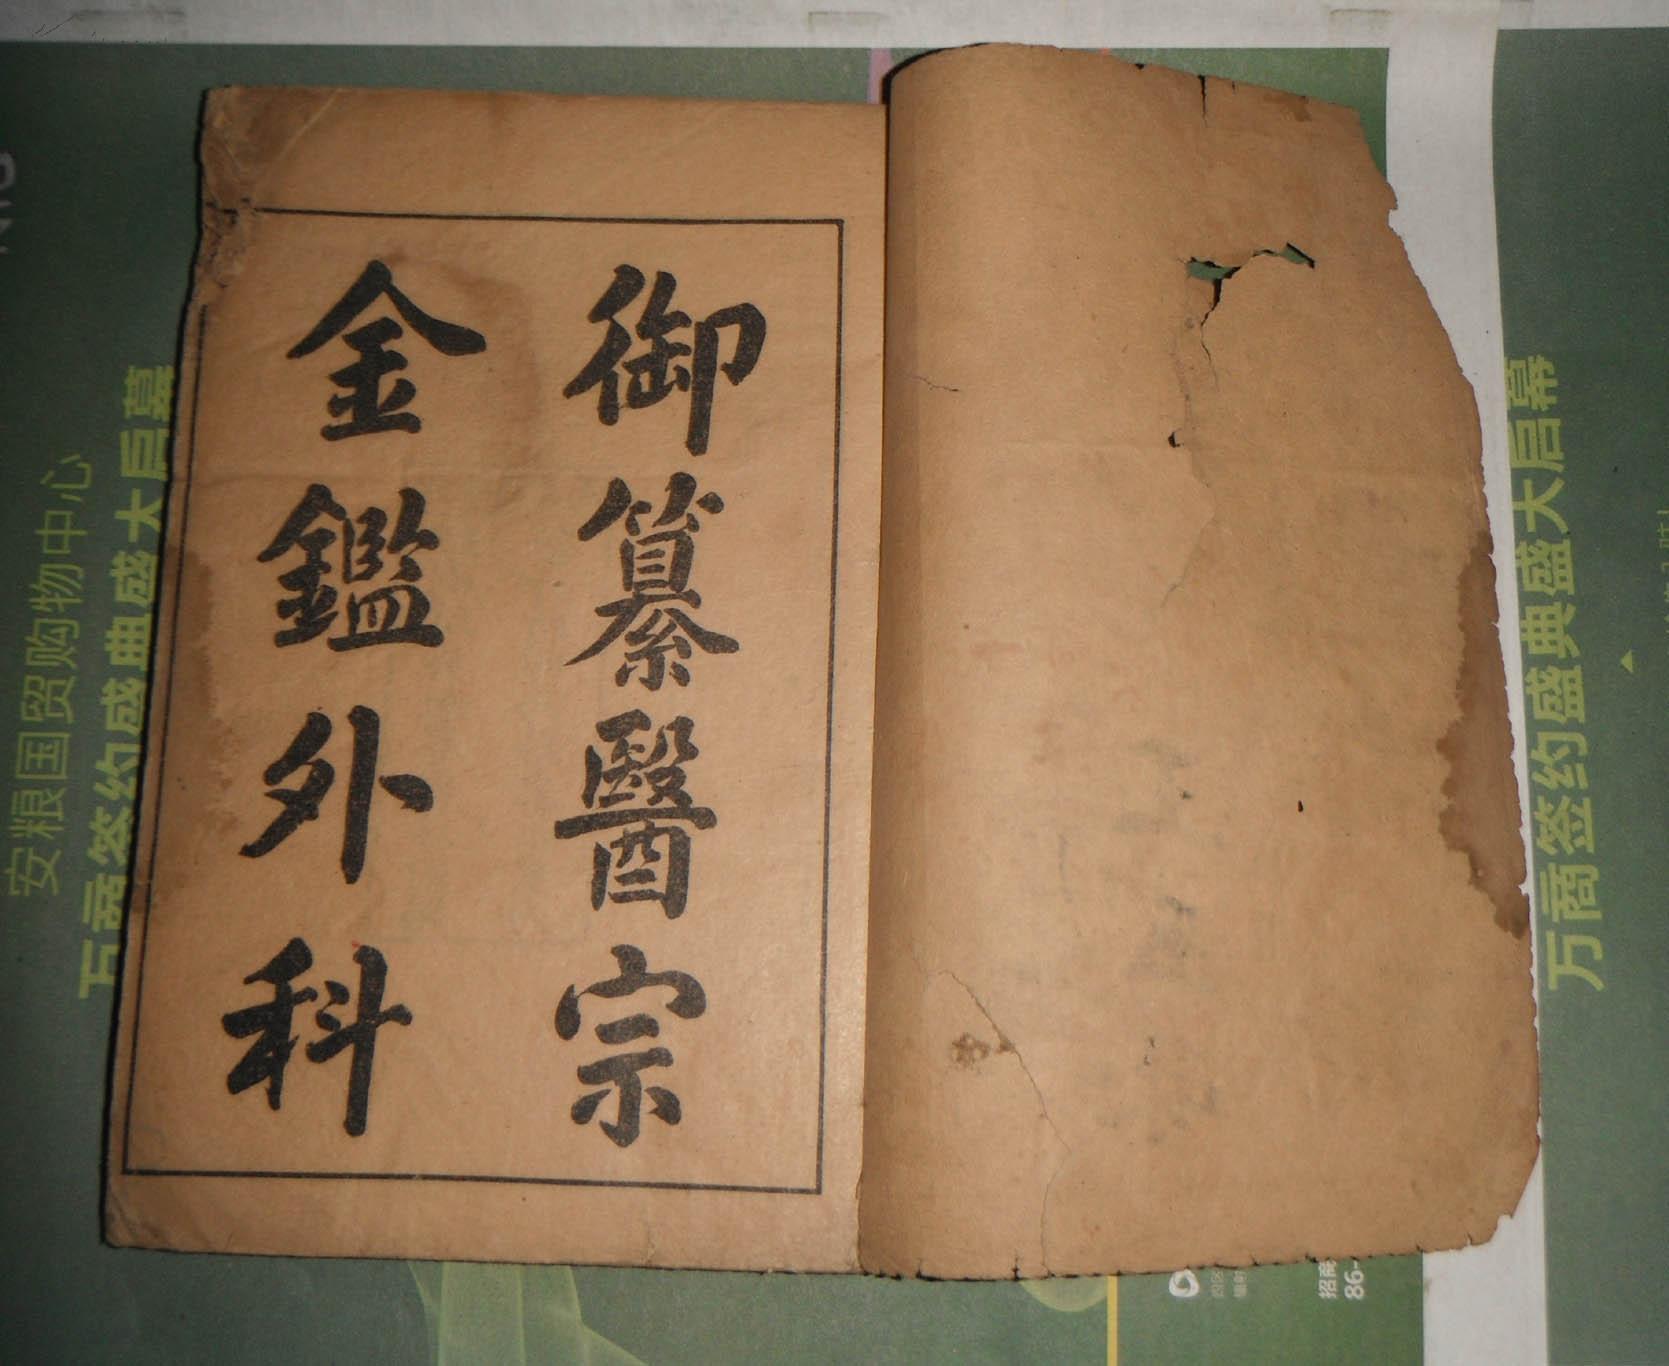 御纂醫宗
金鑑外科
安粮国贸购物中心
万商签约盛典盛大启幕
万商签约盛典盛大启幕
招商
86-